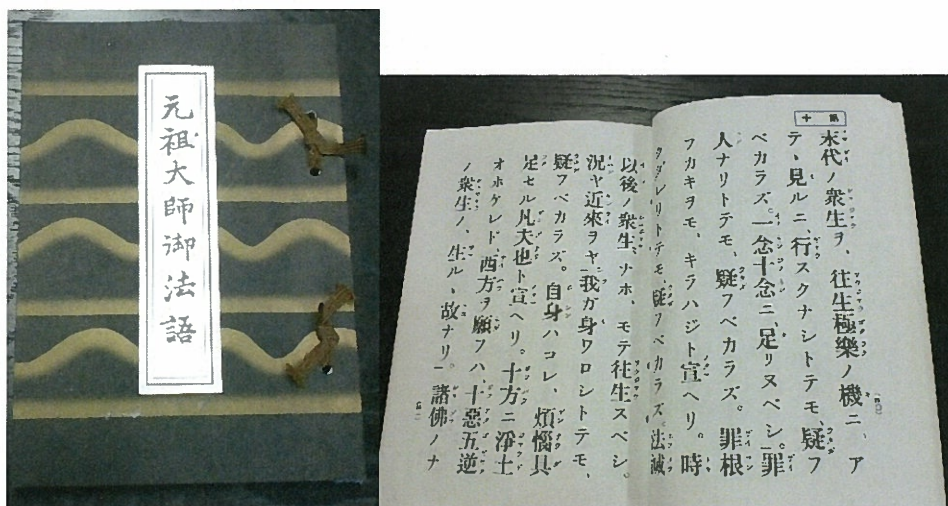 元祖大師御法語
十話
末代ノ衆生ヲ、往生極樂ノ機ニ、ア
テヽ見ルニ、行スクナシトテモ、疑フ
ベカラズ。一念十念ニ、足リヌベシ。罪
人ナリトテモ、疑フベカラズ。罪根
フカキヲモ、キラハジト宣ヘリ。時
クダレリトテモ、疑フベカラズ、法滅
以後ノ衆生、ナホ、モテ往生スベシ。
況ヤ近來ヲヤ。我ガ身ワロシトテモ、
疑フベカラズ。自身ハコレ、煩惱具
足セル凡夫也ト宣ヘリ。十方ニ淨土
オホケレド、西方ヲ願フハ、十惡五逆
ノ衆生ノ、生ルヽ故ナリ。諸佛ノナ